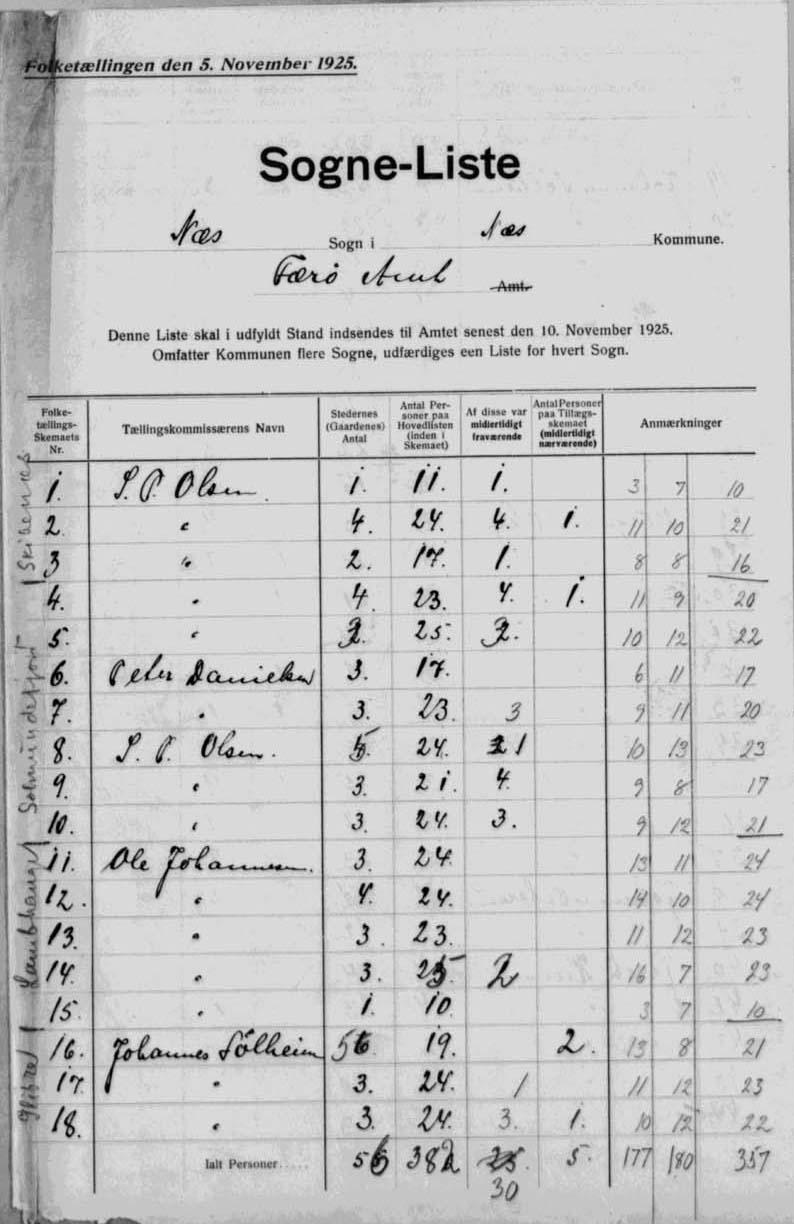 Folketællingen den 5. November 1925.
Sogne-Liste
Næs Sogn i Næs Kommune.
Færö Amt Amt.
Denne Liste skal i udfyldt Stand indsendes til Amtet senest den 10. November 1925.
Omfatter Kommunen flere Sogne, udfærdiges een Liste for hvert Sogn.
Folke-tællings-Skemaets Nr. Tællingskommissærens Navn Stedernes (Gaardenes) Antal Antal Per-soner paa Hovedlisten (inden i Skemaet) Af disse var midlertidigt fraværende Antal Personer paa Tillægs-skemaet (midlertidigt nærværende) Anmærkninger
1. S. P. Olsen. 1. 11. 1. 3 7 10
2. " 4. 24. 4. 1. 11 10 21
3 " 2. 17. 1. 8 8 16
4. " 4. 23. 4. 1. 11 9 20
5. " 25. 3. 10 12 22
6. Peter Danielsen 3. 17. 6 11 17
7. " 3. 23. 3 9 11 20
8. S. P. Olsen. 5. 24. 1 10 13 23
9. " 3. 21. 4. 9 8 17
10. " 3. 24. 3. 9 12 21
11. Ole Johannesen. 3. 24. 13 11 24
12. " 4. 24. 14 10 24
13. " 3. 23. 11 12 23
14. " 3. 25. 2 16 7 23
15. " 1. 10. 3 7 10
16. Johannes Sölheim 5 19. 2. 13 8 21
17. " 3. 24. 1 11 12 23
18. " 3. 24. 3. 1. 10 12 22
Ialt Personer..... 56 382 25. 5. 177 180 357
30
Glibre | Lambhauge | Solmundefjort | Skibenæs